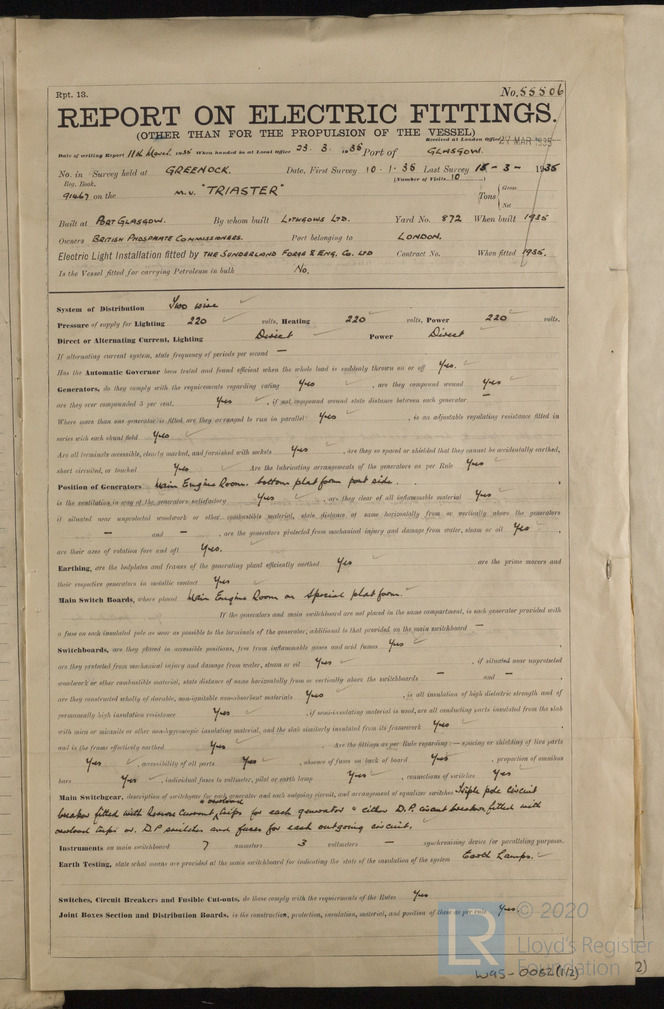 Rpt. 13.
No. 55506
REPORT ON ELECTRIC FITTINGS.
(OTHER THAN FOR THE PROPULSION OF THE VESSEL)
Received at London Office 27 MAR 1935
Date of writing Report 11th March 1935 When handed in at Local Office 23. 3. 1935 Port of GLASGOW.
No. in Survey held at GREENOCK. Date, First Survey 10.1.35 Last Survey 15-3-1935
Reg. Book. (Number of Visits 10)
91467 on the M.V. "TRIASTER" Tons { Gross Net
Built at PORT GLASGOW. By whom built LITHGOWS LTD. Yard No. 872 When built 1935
Owners BRITISH PHOSPHATE COMMISSIONERS. Port belonging to LONDON.
Electric Light Installation fitted by THE SUNDERLAND FORGE & ENG. CO. LTD Contract No. When fitted 1935.
Is the Vessel fitted for carrying Petroleum in bulk No.
System of Distribution Two wire
Pressure of supply for Lighting 220 volts, Heating 220 volts, Power 220 volts.
Direct or Alternating Current, Lighting Direct Power Direct
If alternating current system, state frequency of periods per second —
Has the Automatic Governor been tested and found efficient when the whole load is suddenly thrown on or off Yes.
Generators, do they comply with the requirements regarding rating Yes, are they compound wound Yes
are they over compounded 5 per cent. Yes, if not compound wound state distance between each generator —
Where more than one generator is fitted, are they arranged to run in parallel Yes, is an adjustable regulating resistance fitted in
series with each shunt field Yes
Are all terminals accessible, clearly marked, and furnished with sockets Yes, are they so spaced or shielded that they cannot be accidentally earthed,
short circuited, or touched Yes Are the lubricating arrangements of the generators as per Rule Yes
Position of Generators Main Engine Room. bottom platform port side.
is the ventilation in way of the generators satisfactory Yes, are they clear of all inflammable material Yes
if situated near unprotected woodwork or other combustible material, state distance of same horizontally from or vertically above the generators
— and —, are the generators protected from mechanical injury and damage from water, steam or oil Yes,
are their axes of rotation fore and aft Yes.
Earthing, are the bedplates and frames of the generating plant efficiently earthed Yes are the prime movers and
their respective generators in metallic contact Yes
Main Switch Boards, where placed Main Engine Room on Special platform.
If the generators and main switchboard are not placed in the same compartment, is each generator provided with
a fuse on each insulated pole as near as possible to the terminals of the generator, additional to that provided on the main switchboard —
Switchboards, are they placed in accessible positions, free from inflammable gases and acid fumes Yes,
are they protected from mechanical injury and damage from water, steam or oil Yes, if situated near unprotected
woodwork or other combustible material, state distance of same horizontally from or vertically above the switchboards — and —,
are they constructed wholly of durable, non-ignitable non-absorbent materials Yes, is all insulation of high dielectric strength and of
permanently high insulation resistance Yes, if semi-insulating material is used, are all conducting parts insulated from the slab
with mica or micanite or other non-hygroscopic insulating material, and the slab similarly insulated from its framework Yes,
and is the frame effectively earthed Yes Are the fittings as per Rule regarding:— spacing or shielding of live parts
Yes, accessibility of all parts Yes, absence of fuses on back of board Yes, proportion of omnibus
bars Yes, individual fuses to voltmeter, pilot or earth lamp Yes, connections of switches Yes
Main Switchgear, description of switchgear for each generator and each outgoing circuit, and arrangement of equalizer switches Triple pole circuit
breaker fitted with Reverse Current & overload trips for each generator & either D.P. circuit breaker fitted with
overload trips or D.P switches and fuses for each outgoing circuit.
Instruments on main switchboard 7 ammeters 3 voltmeters — synchronising device for paralleling purposes.
Earth Testing, state what means are provided at the main switchboard for indicating the state of the insulation of the system Earth Lamps.
Switches, Circuit Breakers and Fusible Cut-outs, do these comply with the requirements of the Rules Yes
Joint Boxes Section and Distribution Boards, is the construction, protection, insulation, material, and position of these as per rule Yes.
© 2020
LR
Lloyd's Register
Foundation
W95-0062(1/2)
2)